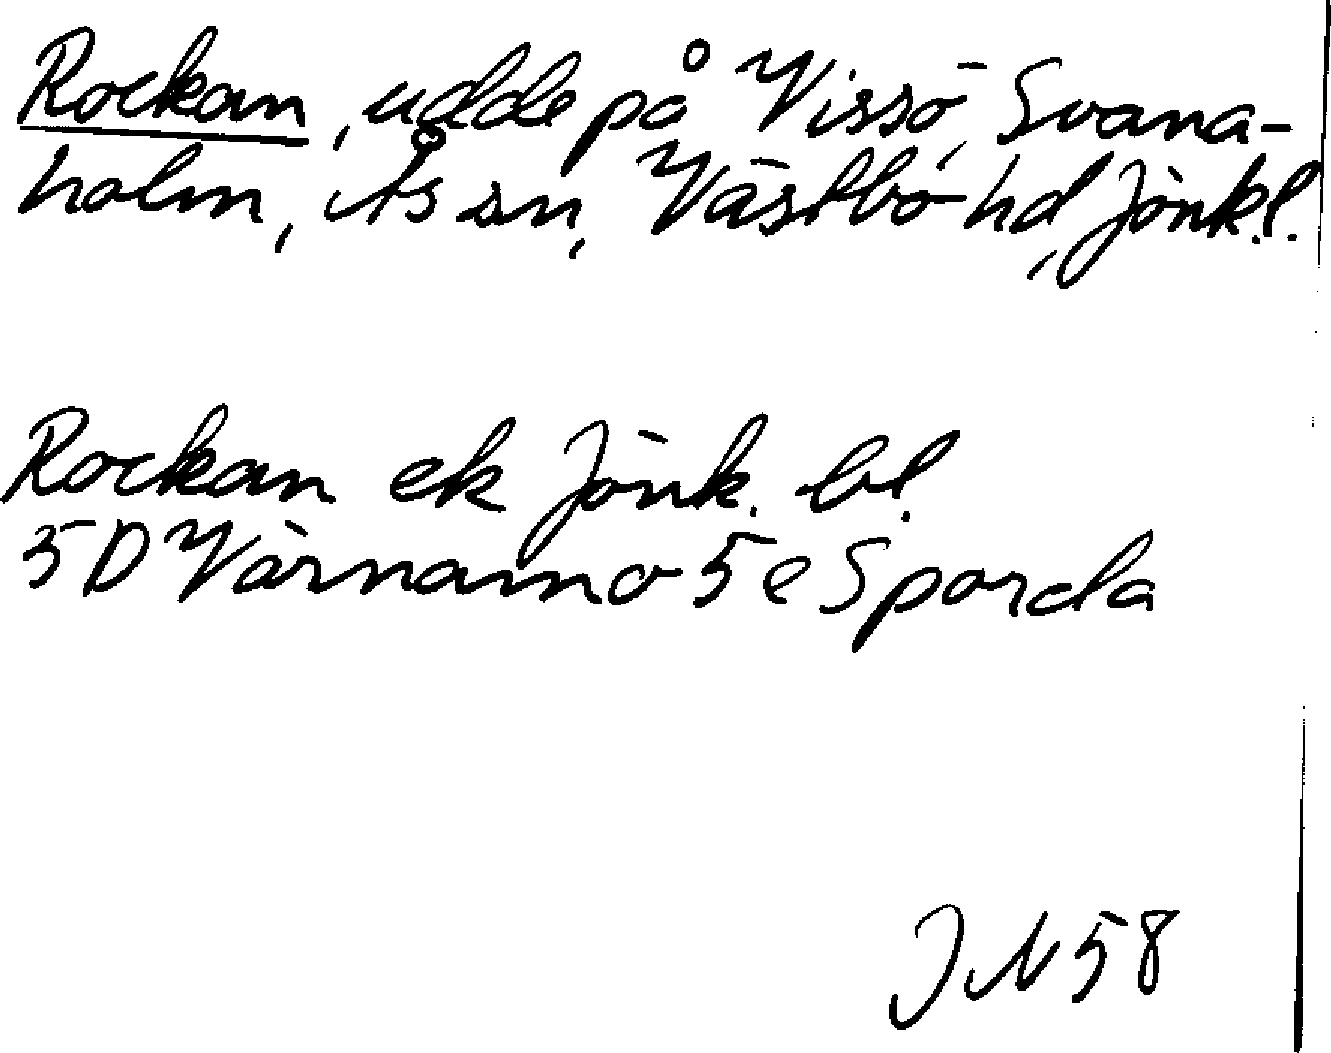 Rockan, udde på Vissö, Svana-
holm, Ås sn, Västbo hd, Jönk.l.
Rockan ek Jönk. bl.
5D Värnamo 5e Sporda
JN 58